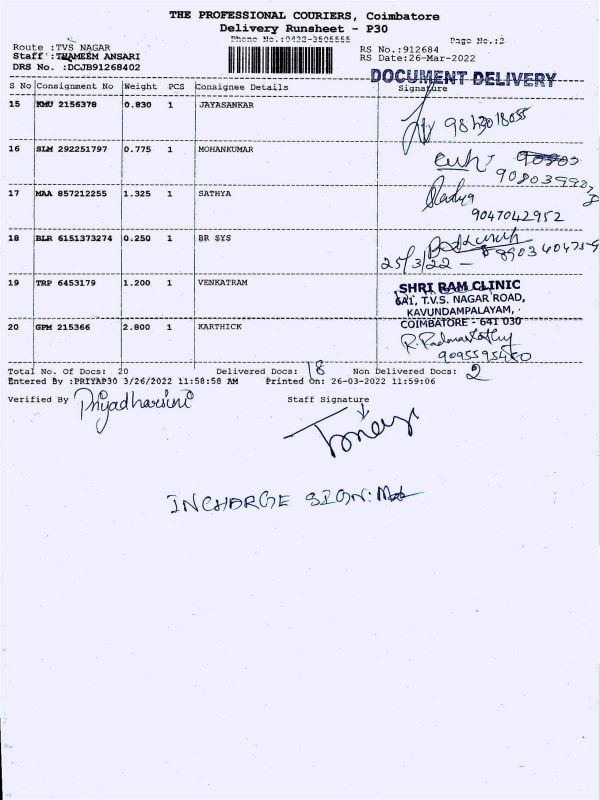 THE PROFESSIONAL COURIERS, Coimbatore
Delivery Runsheet - P30
Phone No.:0422-3505555
Page No.:2
Route :TVS NAGAR
RS No.:912684
Staff :THAMEEM ANSARI
RS Date:26-Mar-2022
DRS No. :DCJB91268402
DOCUMENT DELIVERY
S No Consignment No Weight PCS Consignee Details Signature
15 KMU 2156378 0.830 1 JAYASANKAR
16 SLM 292251797 0.775 1 MOHANKUMAR
17 MAA 857212255 1.325 1 SATHYA
9047042952
18 BLR 6151373274 0.250 1 BR SYS
25/3/22 - 8903404759
19 TRP 6453179 1.200 1 VENKATRAM
SHRI RAM CLINIC
6A1, T.V.S. NAGAR ROAD,
KAVUNDAMPALAYAM,
COIMBATORE - 641 030
20 GPM 215366 2.800 1 KARTHICK
R. Padmavathy
Total No. Of Docs: 20 Delivered Docs: 18 Non Delivered Docs: 2
Entered By :PRIYAP30 3/26/2022 11:58:58 AM Printed On: 26-03-2022 11:59:06
Verified By Priyadharsini Staff Signature
INCHARGE SIGN: